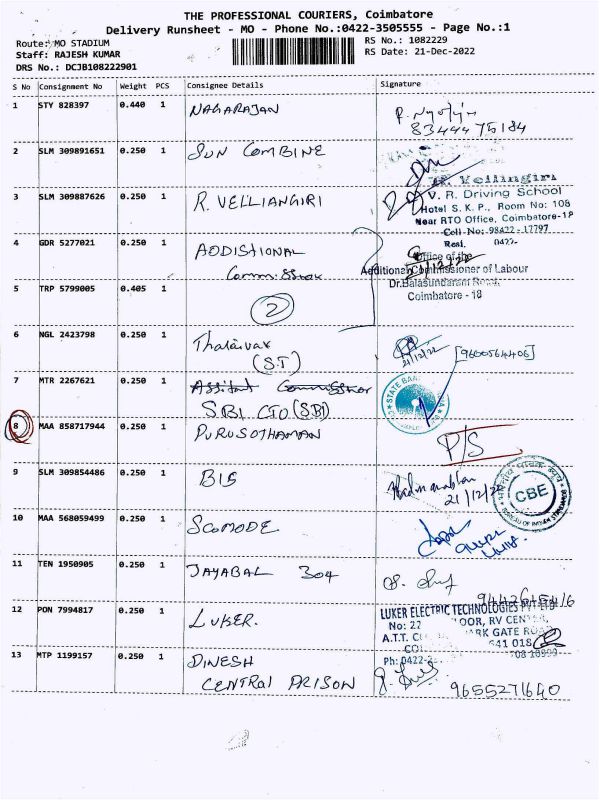 THE PROFESSIONAL COURIERS, Coimbatore
Delivery Runsheet - MO - Phone No.:0422-3505555 - Page No.:1
Route: MO STADIUM
RS No.: 1082229
Staff: RAJESH KUMAR
RS Date: 21-Dec-2022
DRS No.: DCJB108222901
S No Consignment No Weight PCS Consignee Details Signature
1 STY 828397 0.440 1 NAGARAJAN
8344475184
2 SLM 309891651 0.250 1 SUN COMBINE
3 SLM 309887626 0.250 1 R. VELLIANGIRI
Vellingiri
V. R. Driving School
Hotel S. K. P., Room No: 108
Near RTO Office, Coimbatore-18
Cell No: 98422 - 17797
Resi. 0422-
4 GDR 5277021 0.250 1 ADDISTIONAL
Office of the
21/12/22
Additional Commissioner of Labour
Dr.Balasundaram Road,
Coimbatore - 18
5 TRP 5799005 0.405 1
2
6 NGL 2423798 0.250 1 Thalaivar
(S.T)
21/12/22 [9600564406]
7 MTR 2267621 0.250 1
SBI CTO (SBI)
STATE BANK
8 MAA 858717944 0.250 1 PURUSOTHAMAN
P/S
9 SLM 309854486 0.250 1 BIS
21/12/22
CBE
BUREAU OF INDIAN STANDARDS
10 MAA 568059499 0.250 1 SCOMODE
11 TEN 1950905 0.250 1 JAYABAL 304
12 PON 7994817 0.250 1 LUKER.
LUKER ELECTRIC TECHNOLOGIES PVT LTD
No: 22 OOR, RV CENTER,
A.T.T. ARK GATE ROAD
641 018
Ph: 0422-
13 MTP 1199157 0.250 1 DINESH
CENTRAl PRISON
9655271640